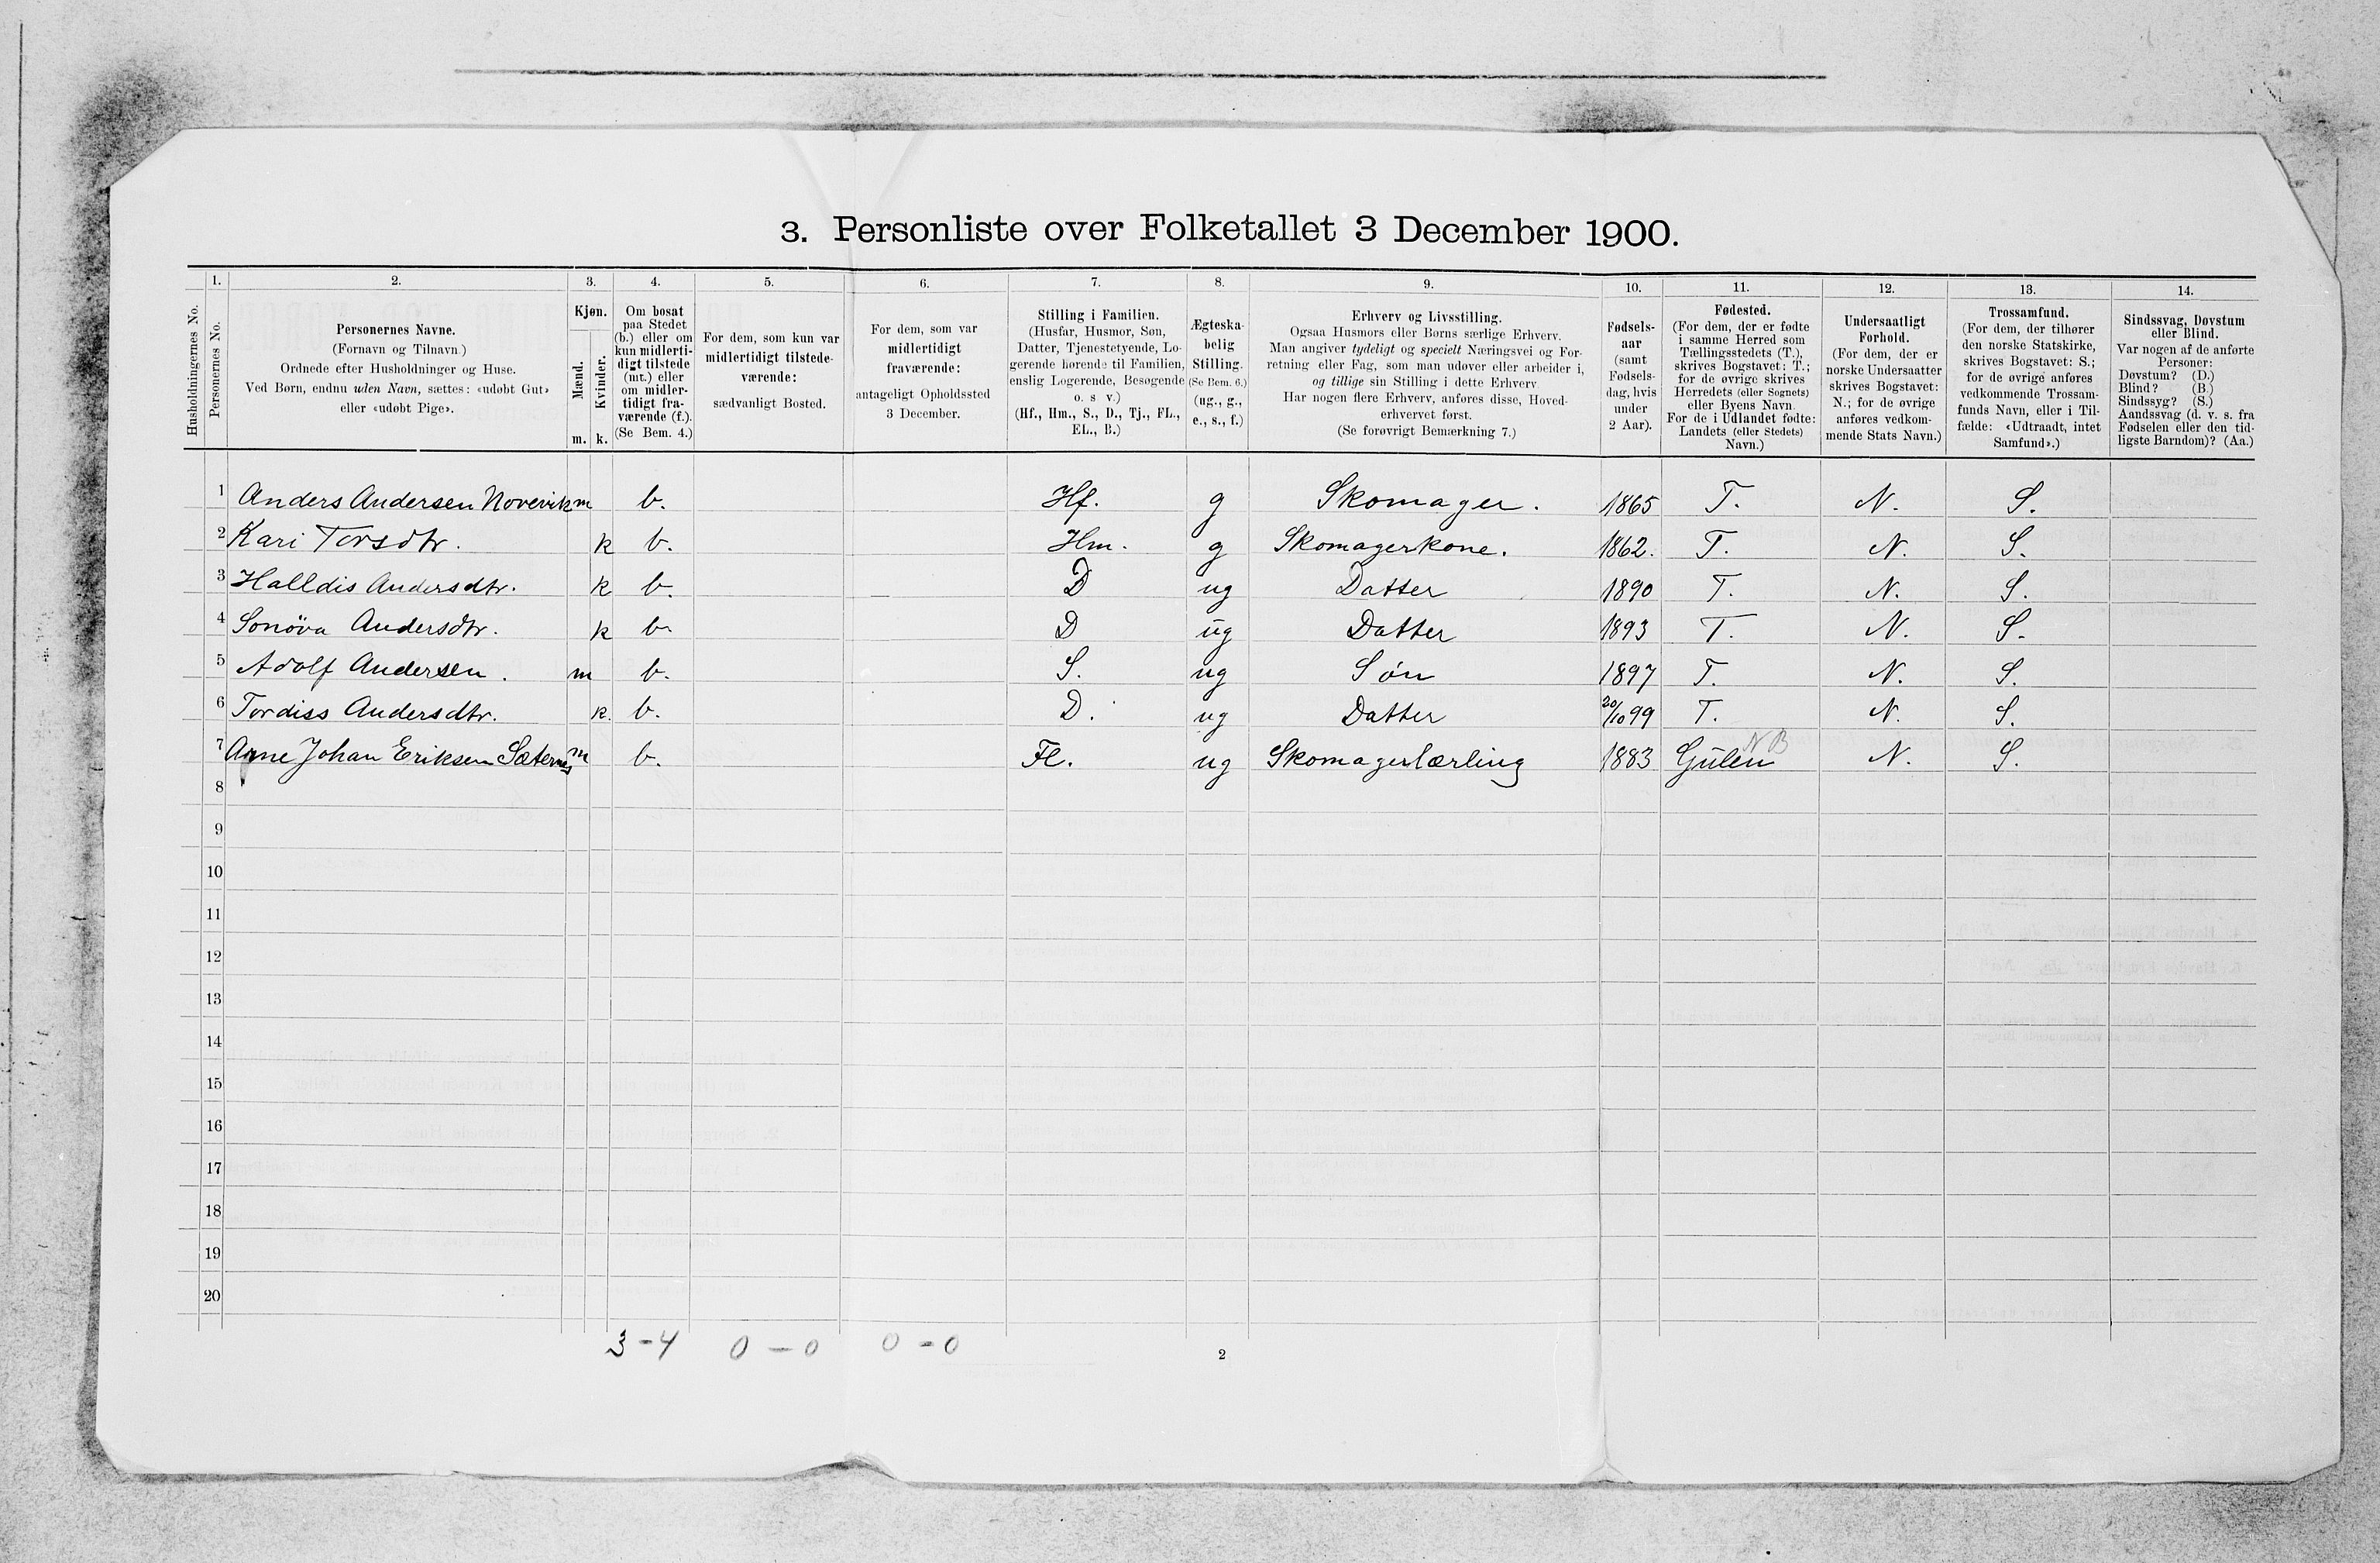 3. Personliste over Folketallet 3 December 1900.
1. 2. 3. 4. 5. 6. 7. 8. 9. 10. 11. 12. 13. 14.
Husholdningernes No.
Personernes No.
Personernes Navne.
(Fornavn og Tilnavn.)
Ordnede efter Husholdninger og Huse.
Ved Børn, endnu uden Navn, sættes: «udøbt Gut»
eller «udøbt Pige».
Kjøn.
Mænd.
Kvinder.
m. k.
Om bosat
paa Stedet
(b.) eller om
kun midlerti-
digt tilstede
(mt.) eller
om midler-
tidigt fra-
værende (f.).
(Se Bem. 4.)
For dem, som kun var
midlertidigt tilstede-
værende:
sædvanligt Bosted.
For dem, som var
midlertidigt
fraværende:
antageligt Opholdssted
3 December.
Stilling i Familien.
(Husfar, Husmor, Søn,
Datter, Tjenestetyende, Lo-
gerende hørende til Familien,
enslig Logerende, Besøgende
o. s. v.)
(Hf., Hm., S., D., Tj., FL.,
EL., B.)
Ægteska-
belig
Stilling.
(Se Bem. 6.)
(ug., g.,
e., s., f.)
Erhverv og Livsstilling.
Ogsaa Husmors eller Børns særlige Erhverv.
Man angiver tydeligt og specielt Næringsvei og For-
retning eller Fag, som man udøver eller arbeider i,
og tillige sin Stilling i dette Erhverv.
Har nogen flere Erhverv, anføres disse, Hoved-
erhvervet først.
(Se forøvrigt Bemærkning 7.)
Fødsels-
aar
(samt
Fødsels-
dag, hvis
under
2 Aar).
Fødested.
(For dem, der er fødte
i samme Herred som
Tællingsstedets (T.),
skrives Bogstavet: T.;
for de øvrige skrives
Herredets (eller Sognets)
eller Byens Navn.
For de i Udlandet fødte:
Landets (eller Stedets)
Navn.)
Undersaatligt
Forhold.
(For dem, der er
norske Undersaatter
skrives Bogstavet:
N.; for de øvrige
anføres vedkom-
mende Stats Navn.)
Trossamfund.
(For dem, der tilhører
den norske Statskirke,
skrives Bogstavet: S.;
for de øvrige anføres
vedkommende Trossam-
funds Navn, eller i Til-
fælde: «Udtraadt, intet
Samfund».)
Sindssvag, Døvstum
eller Blind.
Var nogen af de anførte
Personer:
Døvstum? (D.)
Blind? (B.)
Sindssyg? (S.)
Aandssvag (d. v. s. fra
Fødselen eller den tid-
ligste Barndom)? (Aa.)
1 Anders Andersen Novevik m b. Hf. g Skomager. 1865 T. N. S.
2 Kari Torsdtr. k b. Hm. g Skomagerkone. 1862. T. N. S.
3 Halldis Andersdtr. k b. D ug Datter 1890 T. N. S.
4 Sonöva Andersdtr. k b. D ug Datter 1893 T. N. S.
5 Adolf Andersen. m b. S. ug Søn 1897 T. N. S.
6 Tordiss Andersdtr. k. b. D. ug Datter 20/10 99 T. N. S.
7 Johan Eriksen Sæternes m b. Fl. ug Skomagerlærling 1883 Gulen NB N. S.
8
9
10
11
12
13
14
15
16
17
18
19
20
3-4 0-0 0-0
2